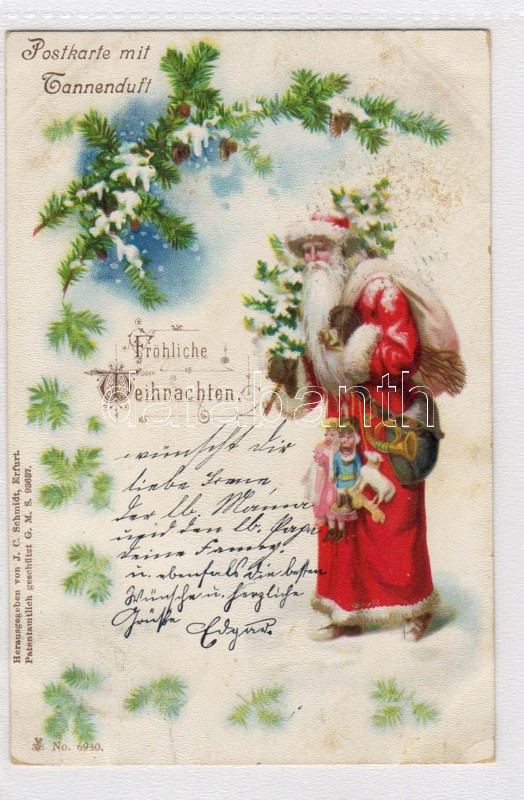 Postkarte mit
Tannenduft
Fröhliche
Weihnachten.
darabanth
wünscht dir
liebe
der lb. Mama
und den lb. Papa
deine
u. ebenfals die besten
Wünsche u. herzliche
Grüsse Edgar.
Herausgegeben von J. C. Schmidt, Erfurt.
Patentamtlich geschützt G. M. S. 99697.
No. 6930.